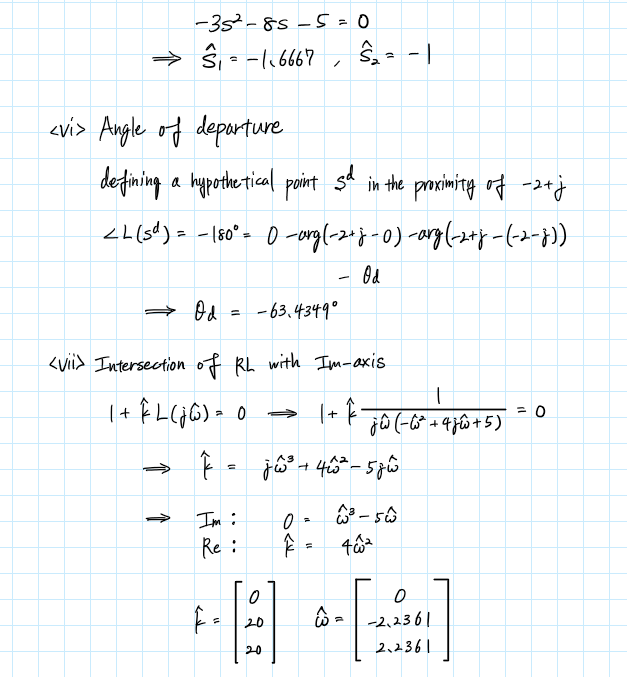 -3s² - 8s - 5 = 0
⟹ ŝ₁ = -1.6667 , ŝ₂ = -1
<vi> Angle of departure
defining a hypothetical point s^d in the proximity of -2+j
∠L(s^d) = -180° = 0 - arg(-2+j-0) - arg(-2+j-(-2-j))
- θd
⟹ θd = -63.4349°
<vii> Intersection of RL with Im-axis
1 + k̂ L(jω̂) = 0 ⟹ 1 + k̂ 1/(jω̂(-ω̂² + 4jω̂ + 5)) = 0
⟹ k̂ = jω̂³ + 4ω̂² - 5jω̂
⟹ Im : 0 = ω̂³ - 5ω̂
Re : k̂ = 4ω̂²
k̂ = [0 20 20] ω̂ = [0 -2.2361 2.2361]